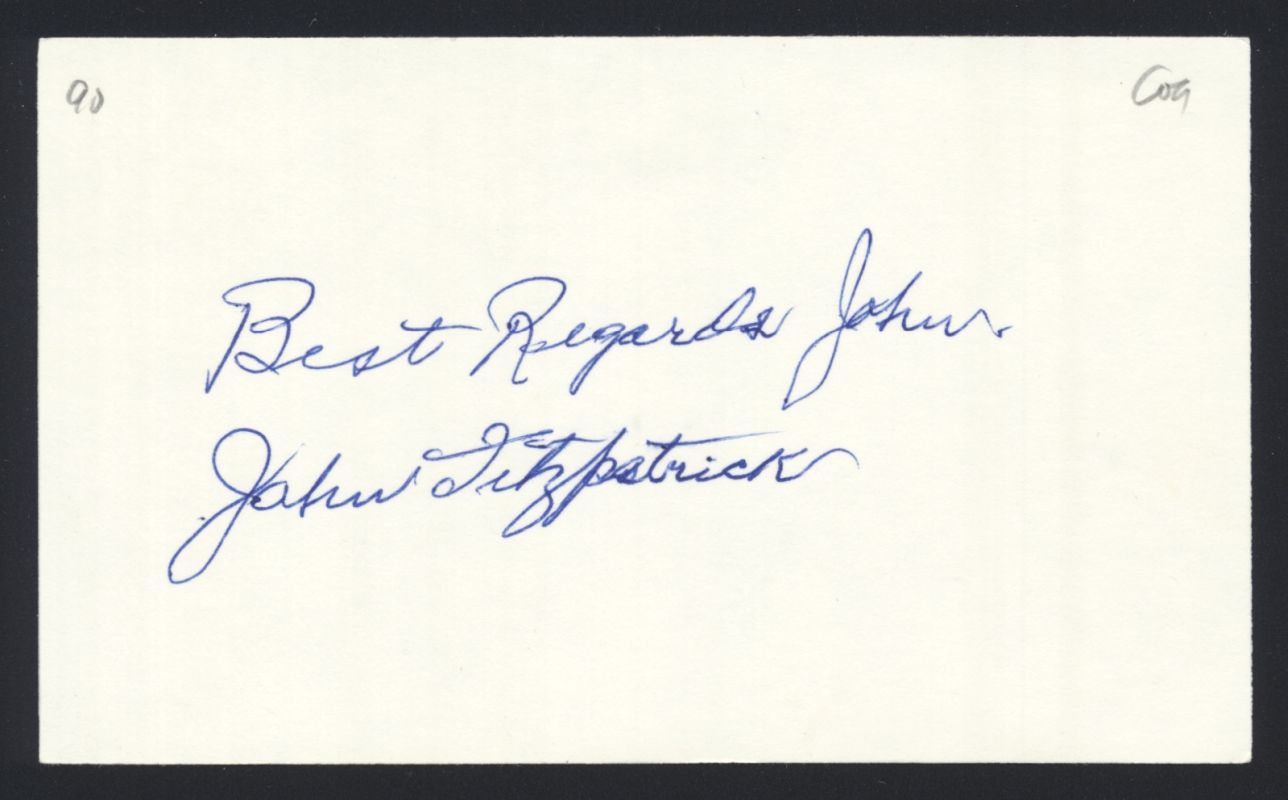 90
Coa
Best Regards John.
John Fitzpatrick